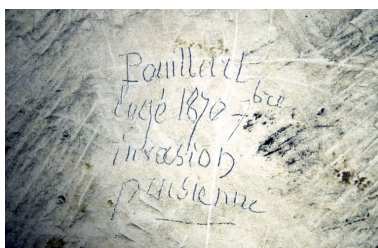 Pouillart
logé 1870 7bre
invasion
prusienne